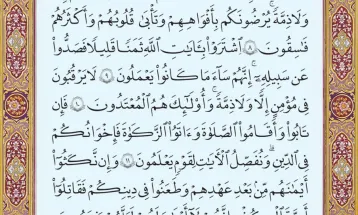 وَلَا ذِمَّةً ۚ يُرْضُونَكُم بِأَفْوَٰهِهِمْ وَتَأْبَىٰ قُلُوبُهُمْ وَأَكْثَرُهُمْ
فَٰسِقُونَ ٨ ٱشْتَرَوْا۟ بِـَٔايَٰتِ ٱللَّهِ ثَمَنًا قَلِيلًا فَصَدُّوا۟
عَن سَبِيلِهِۦٓ ۚ إِنَّهُمْ سَآءَ مَا كَانُوا۟ يَعْمَلُونَ ٩ لَا يَرْقُبُونَ
فِى مُؤْمِنٍ إِلًّا وَلَا ذِمَّةً ۚ وَأُو۟لَٰٓئِكَ هُمُ ٱلْمُعْتَدُونَ ١٠ فَإِن
تَابُوا۟ وَأَقَامُوا۟ ٱلصَّلَوٰةَ وَءَاتَوُا۟ ٱلزَّكَوٰةَ فَإِخْوَٰنُكُمْ
فِى ٱلدِّينِ ۗ وَنُفَصِّلُ ٱلْـَٔايَٰتِ لِقَوْمٍ يَعْلَمُونَ ١١ وَإِن نَّكَثُوٓا۟
أَيْمَٰنَهُم مِّنۢ بَعْدِ عَهْدِهِمْ وَطَعَنُوا۟ فِى دِينِكُمْ فَقَٰتِلُوٓا۟